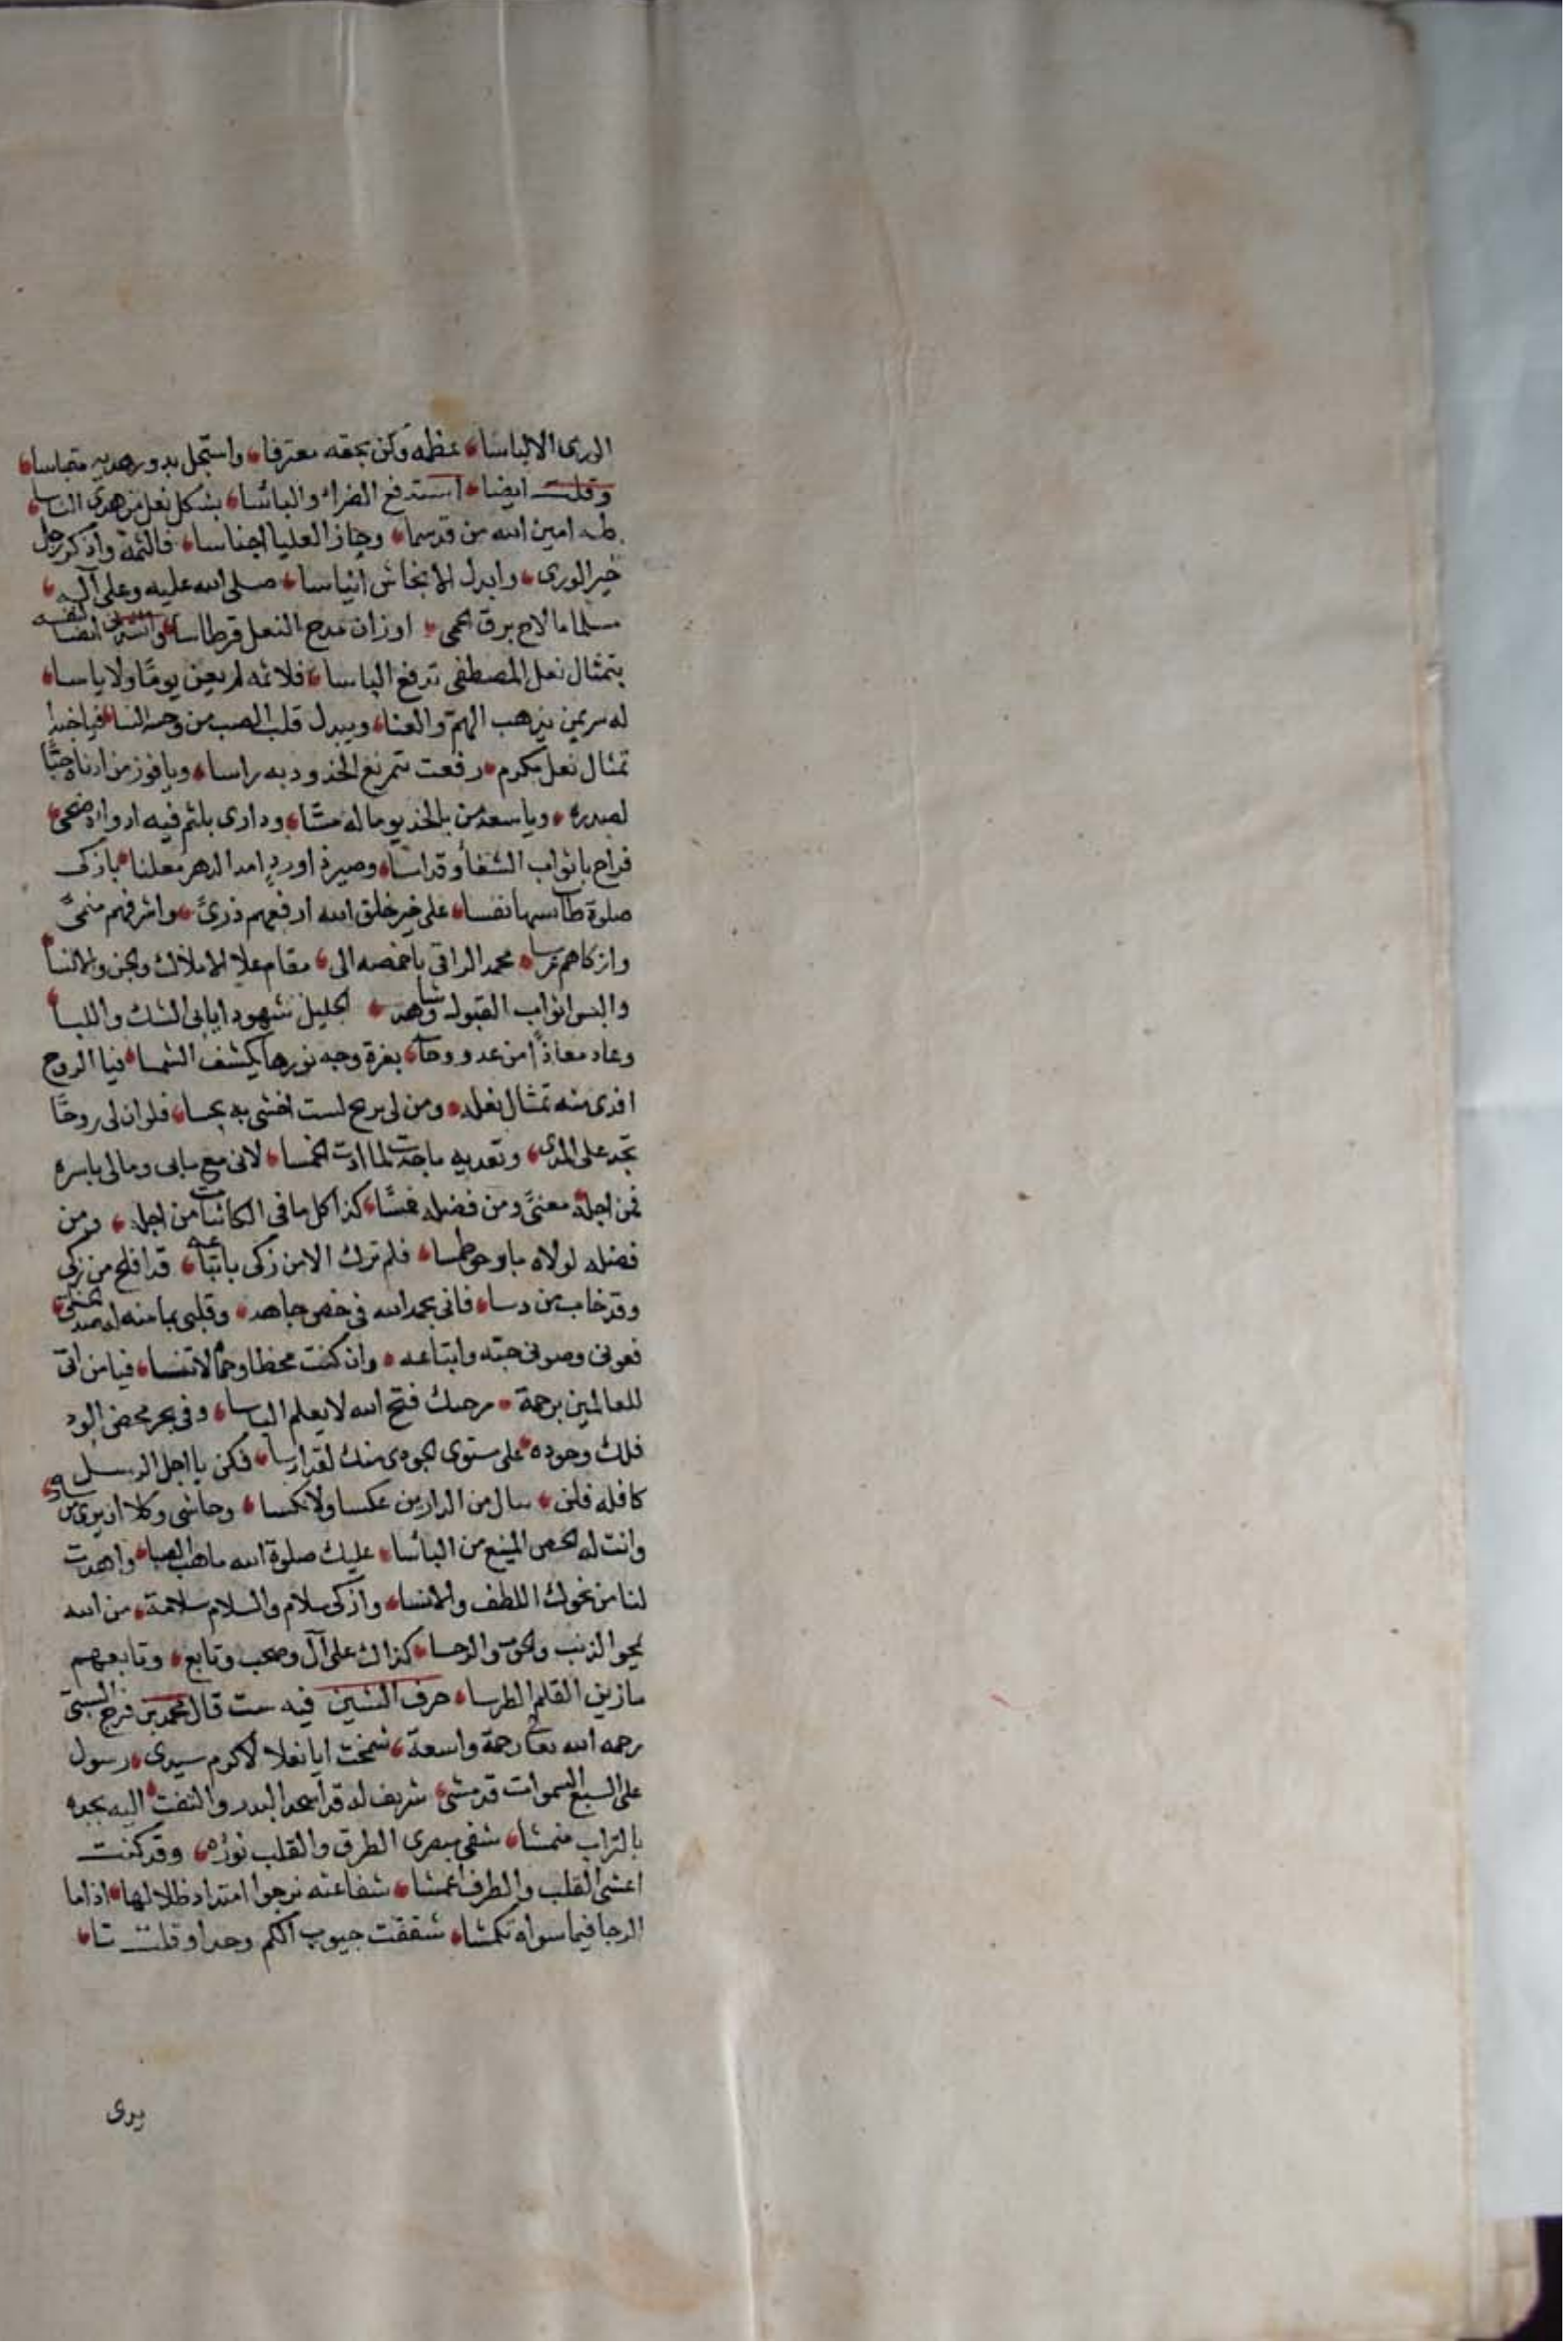 الورى الالباسا عظمه وكن بحقه معترفا واستجل بدور هديه
وقلت ايضا استدفع الضراء والبائسا بشكل نعل من هدى الناسا
طه امين الله من قد سما وحاز العليا اجناسا فالثمه واذكر رجل
خير الورى وابدل الايحاش ايناسا صلى الله عليه وعلى آله
مسلما ما لاح برق الحمى او زان مدح النعل قرطاسا ايضا
بتمثال نعل المصطفى تدفع الباسا فلاثمه اربعين يوما ولا ياسا
له سر يمن يذهب الهم والعنا ويبدل قلب الصب من وحسه انسا فيا حبذا
تمثال نعل مكرم رفعت بتمريغ الخدود به راسا ويا فوز من ادناه حبا
لصدره ويا سعد من بالخد يوما له مسا وداوى بلثم فيه ادواءه ضحى
فراح باثواب الشفا وصيره اورد امد الدهر معلنا بازكى
صلوة طاب نفسا على خير خلق الله ارفعهم ذرى واشرفهم منمى
وازكاهم غرسا محمد الراقى باخمصه الى مقام علا الاملاك والجن والانسا
والبس اثواب القبول وشاهد الجليل شهودا يابى الشك واللبسا
وعاد معاذا من عدو بغرة وجه نورها يكشف الشمسا فيا الروح
افدى منه تمثال نعله ومن لى بربح لست اخشى به بخسا فلو ان لى روحا
تجد على المدى وتفديه ما جدت لما ادت الخمسا لانى مع مابى ومالى باسره
فمن اجله معنى ومن فضله حسا كذا كل ما فى الكائنات من اجله ومن
فضله لولاه فلم ترك الا من زكى باتباعه قد افلح من زكى
وقد خاب من دسا فانى بحمد الله فى جاهد وقلبى بما منه له
فعونى وصونى حبه واتباعه وان كنت فيا من اتى
للعالمين برحمة فتح الله لا يعلم الباسا وفى بحر محض الود
فلك وجوده على مستوى الجودى منك لقد ارسا فكن يا اجل الرسل
كافله فلن من الدارين عكسا ولا نكسا وحاشى وكلا ان يرى
وانت له الحصن المنيع من البائسا عليك صلوة الله ما هب الصبا واهدت
لنا من نحوك اللطف والانسا وازكى سلام والسلام سلامة من الله
يمحو الذنب والحوب والرجسا كذاك على آل وصحب وتابع وتابعهم
ما زين القلم الطرسا حرف الشين فيه ست قال محمد بن فرج السبتى
رحمه الله تعالى رحمة واسعة شمخت ايا نعلا لاكرم سيدى رسول
على السبع السموات قد مشى شريف له قد اسجد البدر والتفت اليه بجده
بالتراب منمشا شفى بصرى الطرف والقلب نوره وقد كنت
اعشى القلب والطرف اعمشا شفاعته نرجوا امتداد ظلالها اذا ما
الرجا فيما سواه تكمشا شققت جيوب الكم وجدا وقلت
يرى